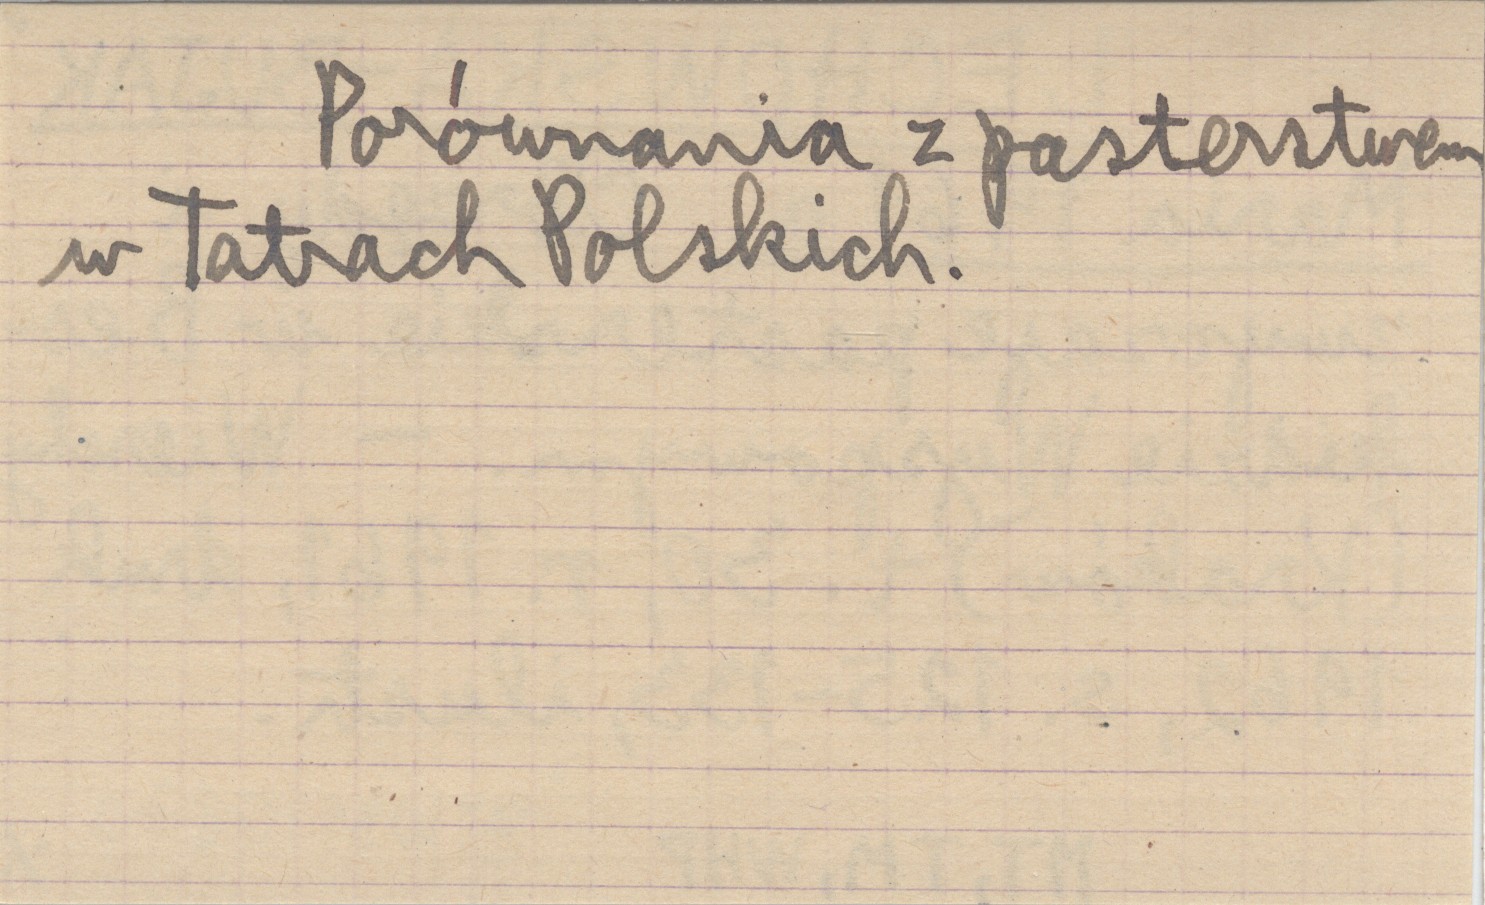 Porównania z pasterstwem
w Tatrach Polskich.